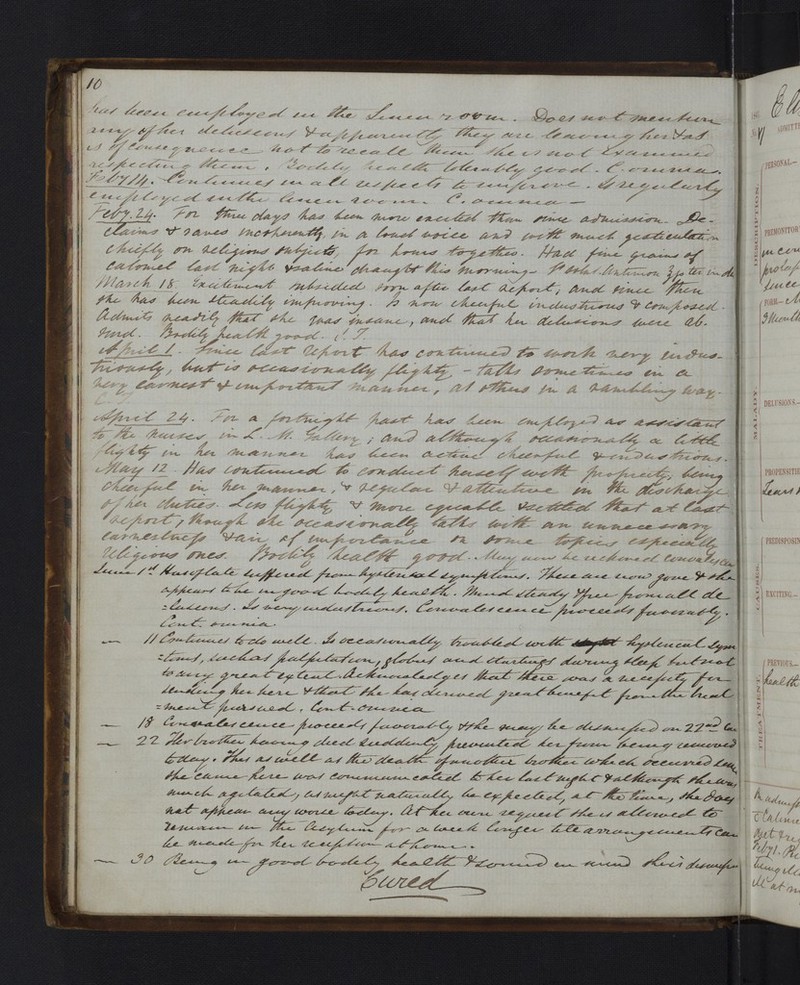 10
has been employed in the Linen room. Does not mention
any of her delusions & apparently they are leaving her & as
is of consequence not to recall them she is not examined
respecting them. Bodily health tolerably good. C. omnia.
Feby 14. Continues in all respects to improve. Is regularly
employed in the linen room. C. omnia —
Feby. 24. For three days has been more excited than since admission. De-
claims & raves incoherently in a loud voice and with much gesticulation
chiefly on religious subjects, for hours together. Had five grains of
calomel last night & saline draught this morning.
March 18. Excitement subsided soon after last report, and since then
she has been steadily improving. Is now cheerful industrious & composed.
Admits readily that she was insane, and that her delusions were ab-
surd. Bodily health good. C. T.
April 1. Since last report has continued to work very indus-
triously, but is occasionally flighty, - talks sometimes in a
very earnest & important manner, at others in a rambling way.
April 24. For a fortnight past has been employed as assistant
to the nurses, in L. M. Gallery; and although occasionally a little
flighty in her manner has been active cheerful & industrious.
May 12. Has continued to conduct herself with propriety, being
cheerful in her manner, & regular & attentive in the discharge
of her duties. Less flighty & more equable & settled that at last
report, though she occasionally talks with an unnecessary
earnestness & air of importance on some topics especially
religious ones. Bodily health good. May now be reckoned
June 1st Has of late suffered from hysterical symptoms. These are now gone & she
appears to be in good bodily health. Mind steady & free from all de
=lusions. Is very industrious. Convalescence proceeds favorably.
Cont. omnia.
— 11 Continues to do well. Is occasionally troubled with hysterical sym
=toms, such as palpitation, globus and startings during sleep but not
to any great extent. Acknowledges that there was a necessity for
sending her here & that she has derived great benefit from the treat
=ment pursued. Cont. omnia
— 18 Convalescence proceeds favorably & she may be dismissed on 22nd
— 22 Her brother having died suddenly prevented her from being removed
today. This as well as the death of another brother which occurred
she came here was communicated to her last night & although she was
much agitated, as might naturally be expected, at the time, she does
not appear any worse today. At her own request she is allowed to
remain in the Asylum for a week longer till arrangements can
be made for her reception at home.
— 30 Being in good bodily health & sound in mind she is
Cured
PERSONAL—
DESCRIPTION.
MALADY.
DELUSIONS—
CAUSES.
EXCITING—
PREVIOUS—
health
TREATMENT
Feby 1.